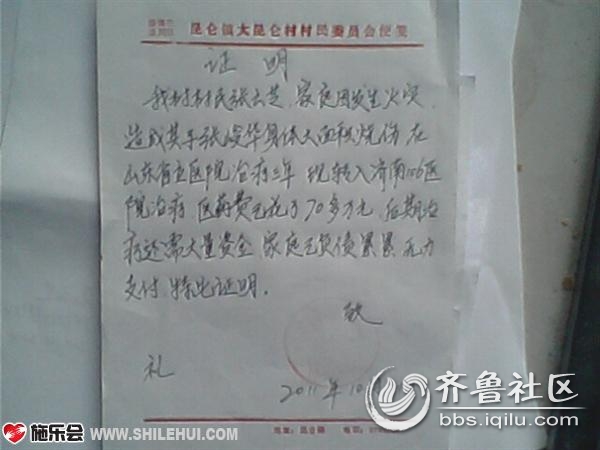 昆仑镇大昆仑村村民委员会便笺
证 明
我村村民张云芝，家庭因发生火灾，
造成其子张峻华身体大面积烧伤 在
山东省立医院治疗三年 现转入济南106医
院治疗 医药费已花了70多万元，后期治
疗还需大量资金，家庭已负债累累 无力
支付，特此证明．
致
礼
2011年10
施乐会 WWW.SHILEHUI.COM
齐鲁社区
bbs.iqilu.com